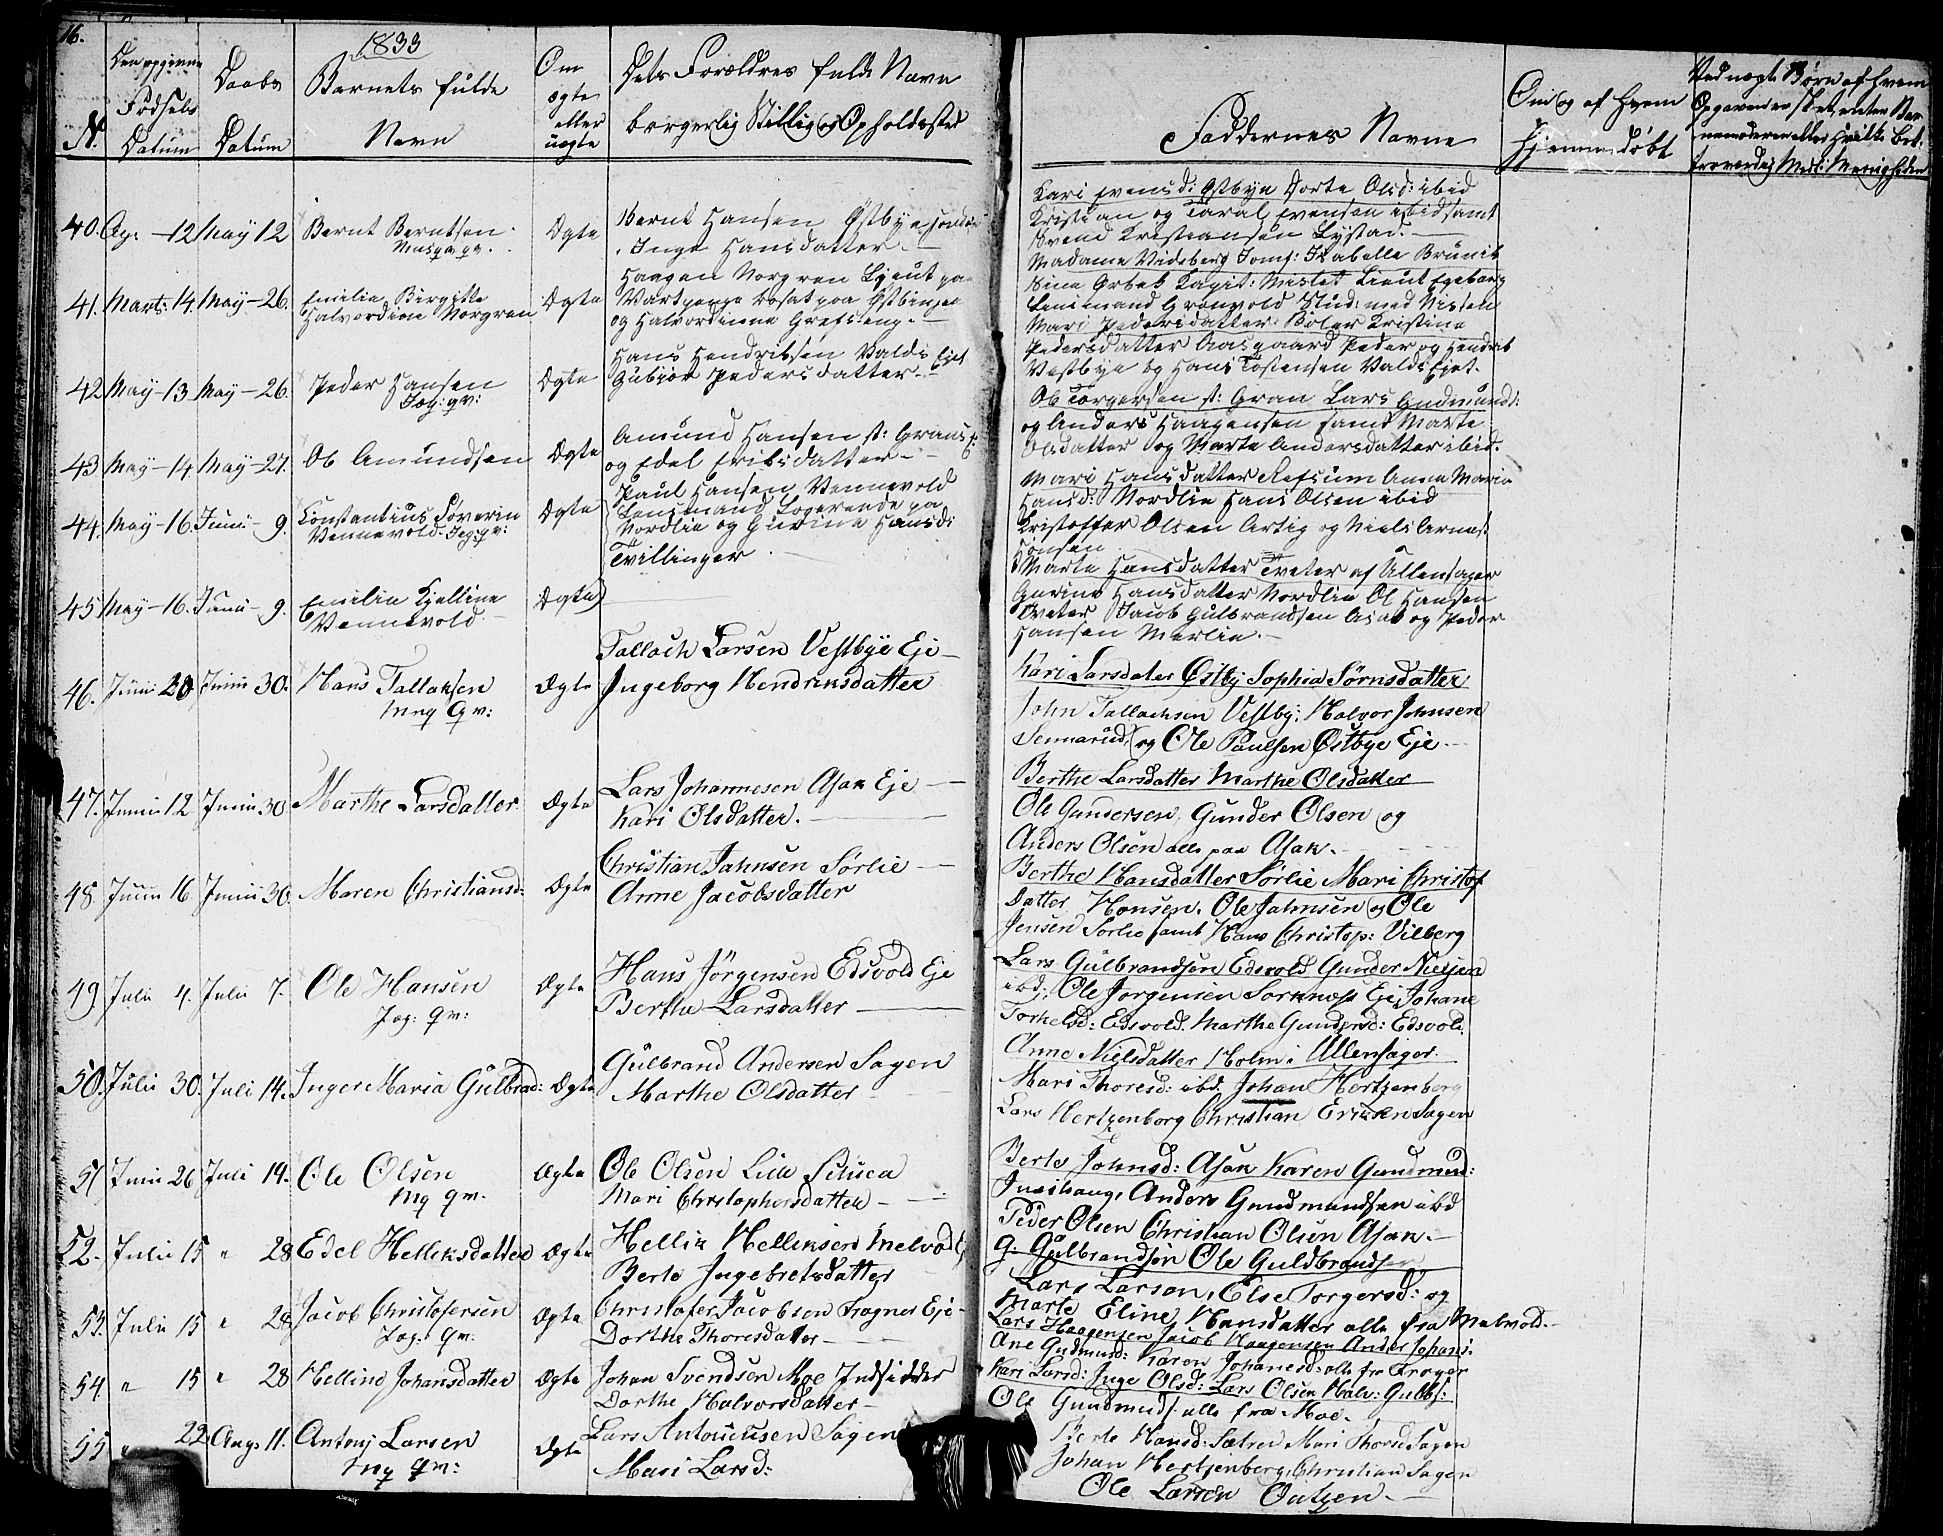 16.
1833
N.
Den opgivne
Fødsels
Datum
Daabs
Datum
Barnets fulde
Navn
Om
ægte
eller
uægte
Dets Forældres fulde Navn
borgerlig Stillig og Opholdssted
Faddernes Navne
Om og af hvem
hjemmedøbt
Ved uægte Børn af hvem
40. Ap. - 12 May 12 Bernt Berntsen Ægte Bernt Hansen Østbye
Inge Hansdatter. —
Kari Evensd: Østbye Dorte Olsd: ibid
Kristian og Taral Evensen ibid samt
Svend Kristiansen Lystad. —
41. Marts: 14. May - 26. Emilie Birgitte
Halvordine Norgren Ægte Haagen Norgren Lieut paa
Vartpenge bosat paa Østbingen
og Halvordinne Grefseng. —
Madame Wideberg Jomf: Isabelle Brunik
Lensmand Grønvold Stud: med Nissen
42 May - 13 May - 26. Peder Hansen
Jag: qv: Ægte Hans Hendriksen Valds Ejet
Gubjør Pedersdatter. —
Mari Pedersdatter Böler Kristine
Pedersdatter Aasgaard Peder og Hendrik
Vestbye og Hans Tostensen Valds Ejet.
43 May - 14. May - 27. Ole Amundsen Ægte Amund Hansen st: Grans
og Edel Eriksdatter —
Ole Torgersen st: Gran Lars Gudmunds:
og Anders Haagensen samt Marte
Olsdatter og Marte Andersdatter ibid.
44. May - 16. Juni - 9. Constantius Søverin
Vennevold. Jag: qv: Ægte Paul Hansen Vennevold
Lensmand Logerende pa
Nordlie og Gurine Hansd:
Tvillinger
Mari Hansdatter Refsum Anna Maria
Hansd: Nordlie Hans Olsen ibid
Kristoffer Olsen Artig og Niels Arnes:
Hønsen
45 May - 16. Juni - 9. Emilie Kjelline
Vennevold — Ægte
Marte Hansdatter Tveter af Ullensager
Gurine Hansdatter Nordlie Ol Hansen
Tveter Jacob Gulbrandsen Asak og Peder
Hansen Merlie. —
46. Juni 20 Junii 30. Hans Tallaksen
mg qv: Ægte Tallach Larsen Vestbye Eje —
Ingeborg Hendriksdatter
Kari Larsdater Østby Sophia Sörnsdatter
John Tallachsen Vestby. Halvor Johnsen
Sennerud, og Ole Paulsen Östbye Eje —
47. Junii 12 Junii 30 Marthe Larsdatter Ægte Lars Johannesen Asak Eje —
Kari Olsdatter. —
Berthe Larsdatter Marthe Olsdatter
Ole Gundersen, Gunder Olsen og
Anders Olsen alle paa Asak.
48. Junii 16 Junii 30 Maren Christiansd: Ægte Christian Jahnsen Sörlie —
Anne Jacobsdatter
Berthe Hansdatter Sörlie Mari Christof
datter Hansen. Ole Jahnsen og Ole
Jensen Sorlie samt Hans Christop: Vilberg
49 Julii 4. Julii 7. Ole Hansen
Jag: qv: Ægte Hans Jörgensen Edsvold Eje
Berthe Larsdatter —
Lars Gulbrandsøn Edsvold Gunder Nielsen
ibd: Ole Jorgensen Sorknæss Eje, Johane
Torkelsd: Edsvold. Marthe Gundersd: Edsvold.
50. Julii 30. Juli 14. Inger Maria Gülbrad: Ægte Gülbrand Andersen Sagen
Marthe Olsdatter —
Anne Nielsdatter Holm i Ullensager.
Mari Thoresd: ibd. Johan Hertzenberg
Lars Hertzenborg Christian Eriksen Sagen
51 Junii 26 Juli 14. Ole Olsen
mg qv. Ægte Ole Olsen Lille
Mari Christophersdatter —
Berte Johnsd: Asak Karen Gundmud:
Anders Gundmundsen ibd
Peder Olsen Christian Olsen Asak. —
52. Julii 15 " 28 Edel Helleksdatter Ægte Hellik Helliksen Melvold Ej
Berte Ingebretsdatter
G. Gulbrandsøn Ole Guldbrandsen
Lars Larsen, Else Torgersd: og
Marte Eline Hansdatter alle fra Melvold. —
53. Julii 15 " 28 Jacob Christofersen
Jag: qv: Ægte Christofer Jacobsen Frogner Eje —
Dorthe Thoresdatter —
Lars Haagensen Jacob Haagensen Ander Johans:
Ane Gudmund: Karen Johanesd: alle fra Froger
54 " 15 " 28 Helline Johansdatter Ægte Johan Svendsen Moe Indsidder
Dorthe Halvorsdatter —
Kari Larsd: Inge Olsd: Lars Olsen Halv: Gulb:
Ole Gundmuds: alle fra Moe.
55 " 22 Aug. 11. Antonj Larsen
mg qv: Ægte Lars Antoniusen Sagen
Mari Larsd:
Berte Hansd: Sætren Mari Thorsd Sagen
Johan Hertzenberg, Christian Sagen
Ole Larsen Oulzen. —